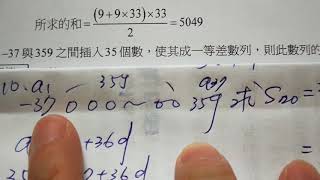 所求的和=(9+9×33)×33/2=5049
-37與359之間插入35個數，使其成一等差數列，則此數列的
10. a1 35個 a37
-37 0 0 0 ~ 0 0 359 求 S20 =
+36d =
+36d